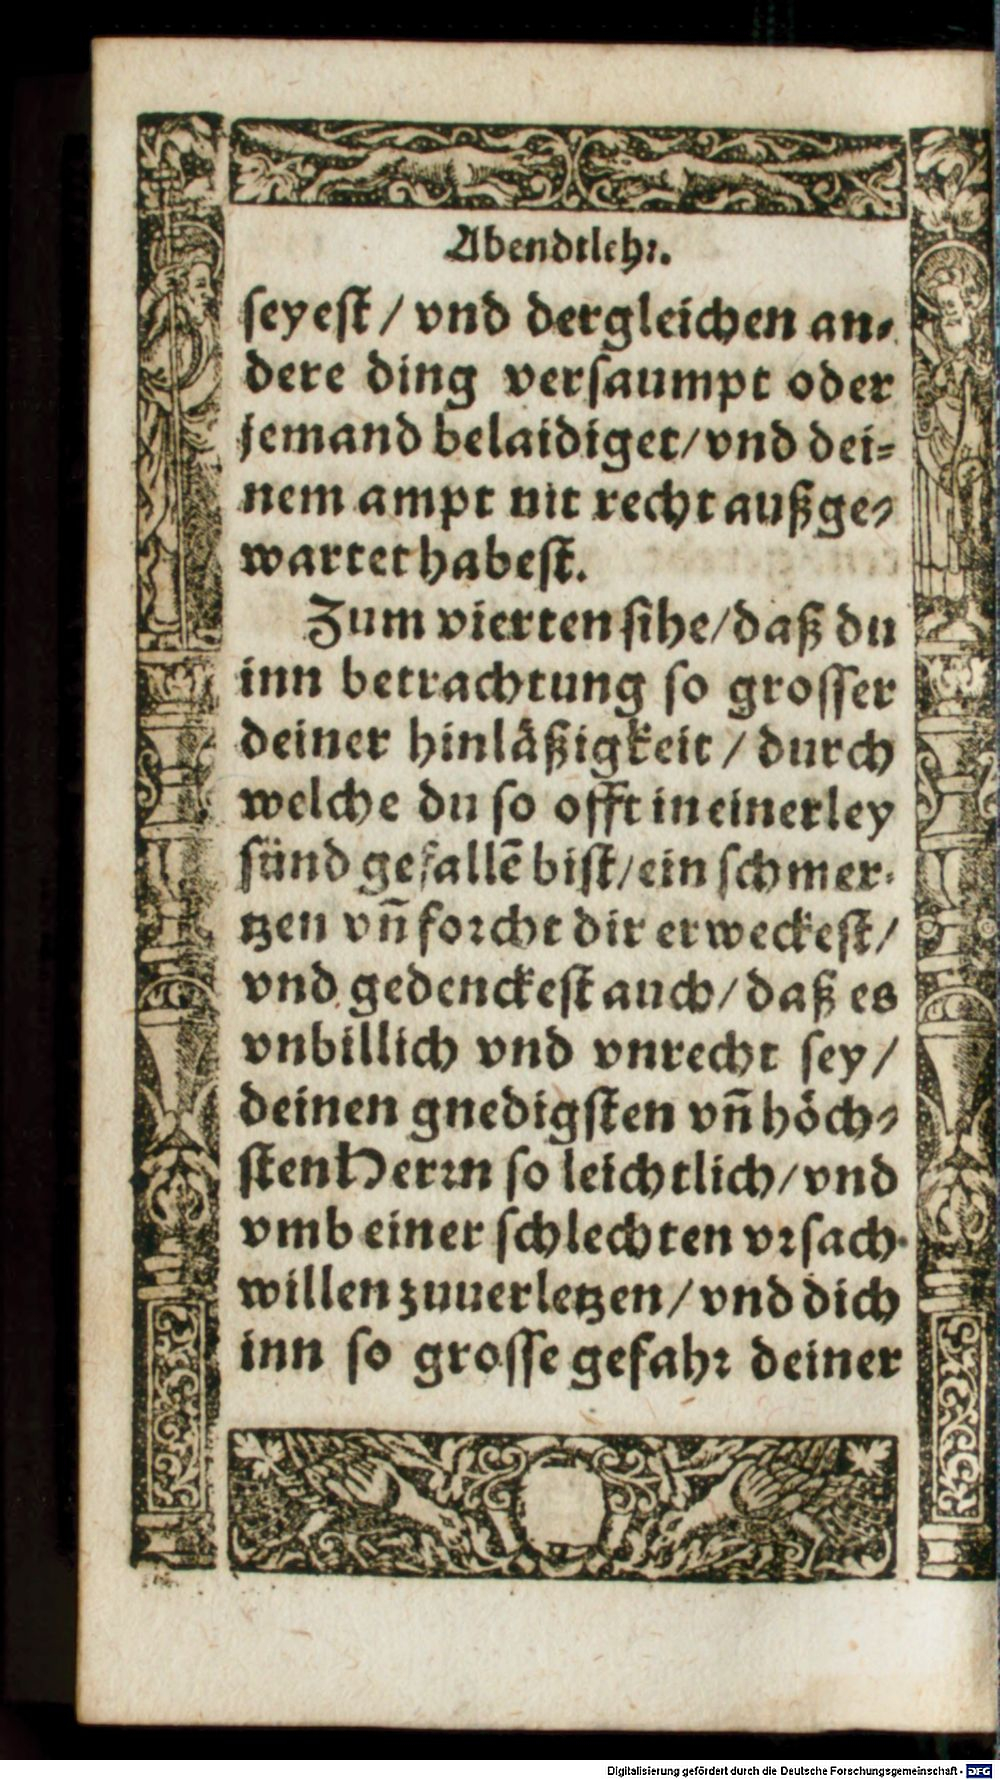 Abendtlehr.
seyest / vnd dergleichen an-
dere ding versaumpt oder
jemand belaidiget/vnd dei-
nem ampt nit recht außge-
wartet habest.
Zum vierten sihe/daß du
inn betrachtung so grosser
deiner hinläßigkeit / durch
welche du so offt in einerley
sünd gefallē bist/ein schmer-
tzen vñ forcht dir erweckest/
vnd gedenckest auch/daß es
vnbillich vnd vnrecht sey/
deinen gnedigsten vñ höch-
sten Herrn so leichtlich/vnd
vmb einer schlechten vrsach
willen zuuerletzen/vnd dich
inn so grosse gefahr deiner
Digitalisierung gefördert durch die Deutsche Forschungsgemeinschaft - DFG